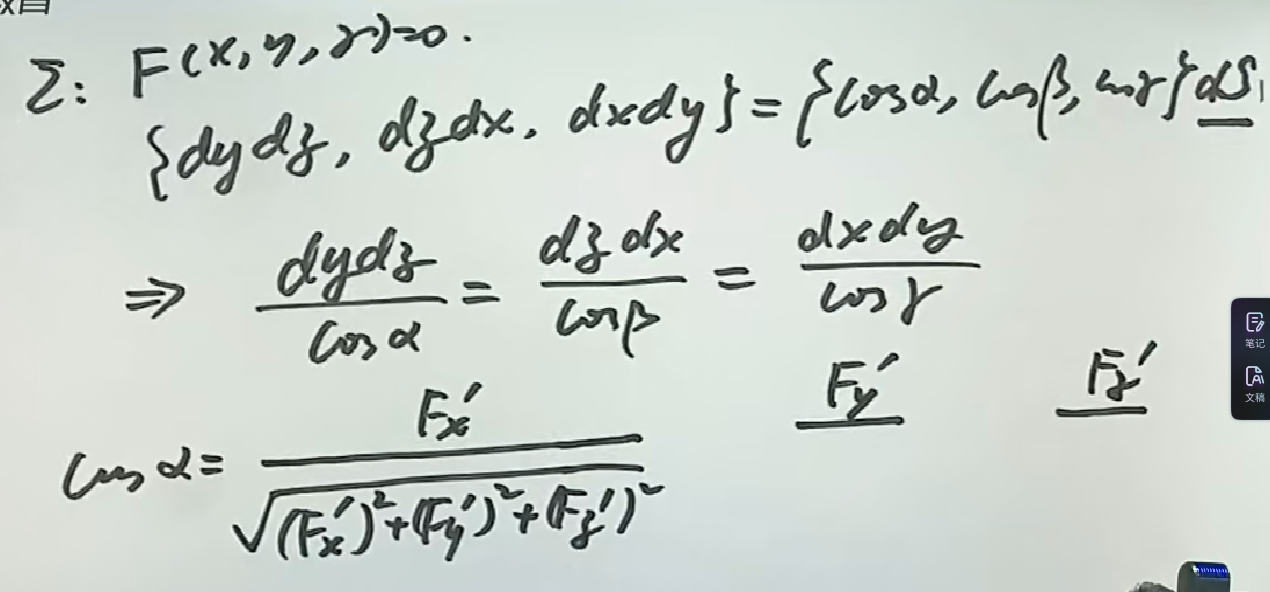 Σ: F(x, y, z)=0.
{dydz, dzdx, dxdy} = {cosα, cosβ, cosγ}dS,
⇒ dydz/cosα = dzdx/cosβ = dxdy/cosγ
cosα = Fx′/√((Fx′)²+(Fy′)²+(Fz′)²) Fy′ Fz′
笔记
文稿